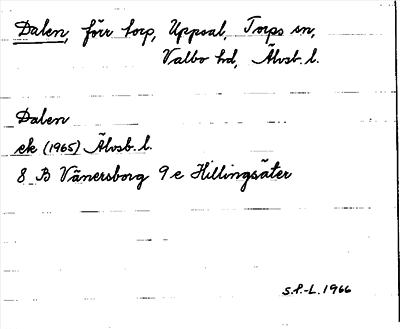 Dalen, förr torp, Uppsal, Torps sn,
Valbo hd, Älvsb. l.
Dalen
ek (1965) Älvsb. l.
8 B Vänersborg 9 e Hillingsäter
S.P.-L. 1966